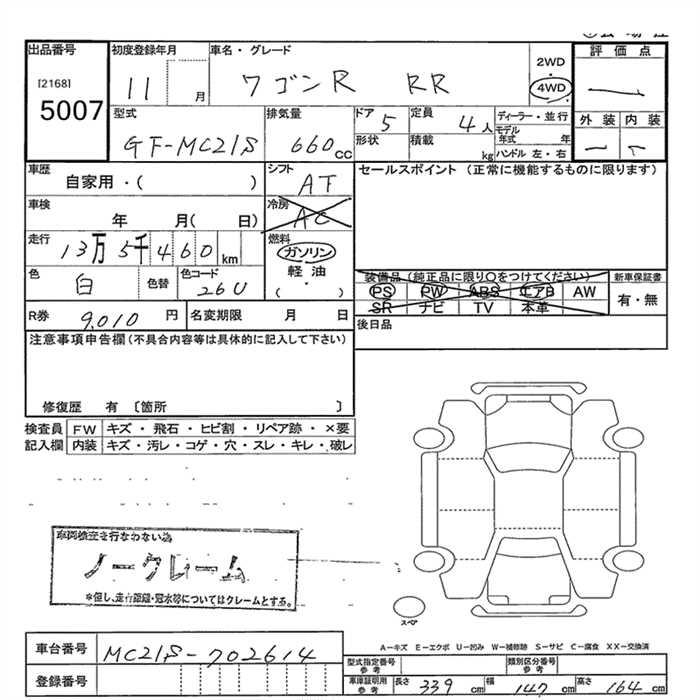 出品番号
[2168]
5007
初度登録年月
11 月
車名・グレード
ワゴンR RR
2WD
4WD
評価点
外装 内装
型式
GF-MC21S
排気量
660 cc
ドア 5
形状
定員 4人
積載 kg
ディーラー・並行
モデル年式 年
ハンドル 左・右
車歴
自家用・( )
シフト
AT
セールスポイント (正常に機能するものに限ります)
車検
年 月( 日)
冷房
AC
走行
13万5千460km
燃料
ガソリン
軽油
( ・ )
色
白
色替
色コード
26U
装備品 (純正品に限り○をつけてください)
新車保証書
PS PW ABS エアB AW
有・無
SR ナビ TV 本革
R券 9,010 円
名変期限 月 日
後日品
注意事項申告欄(不具合内容等は具体的に記入して下さい)
修復歴 有 〔箇所 〕
検査員 FW キズ・飛石・ヒビ割・リペア跡・×要
記入欄 内装 キズ・汚レ・コゲ・穴・スレ・キレ・破レ
車両検査を行なわない為
ノークレーム
*但し、走行距離・冠水等についてはクレームとする。
スペア
A-キズ E-エクボ U-凹み W-補修跡 S-サビ C-腐食 XX-交換済
車台番号 MC21S-702614
型式指定番号
参考
類別区分番号
参考
登録番号
車庫証明用
参考
長さ 339 cm 幅 147 cm 高さ 164 cm